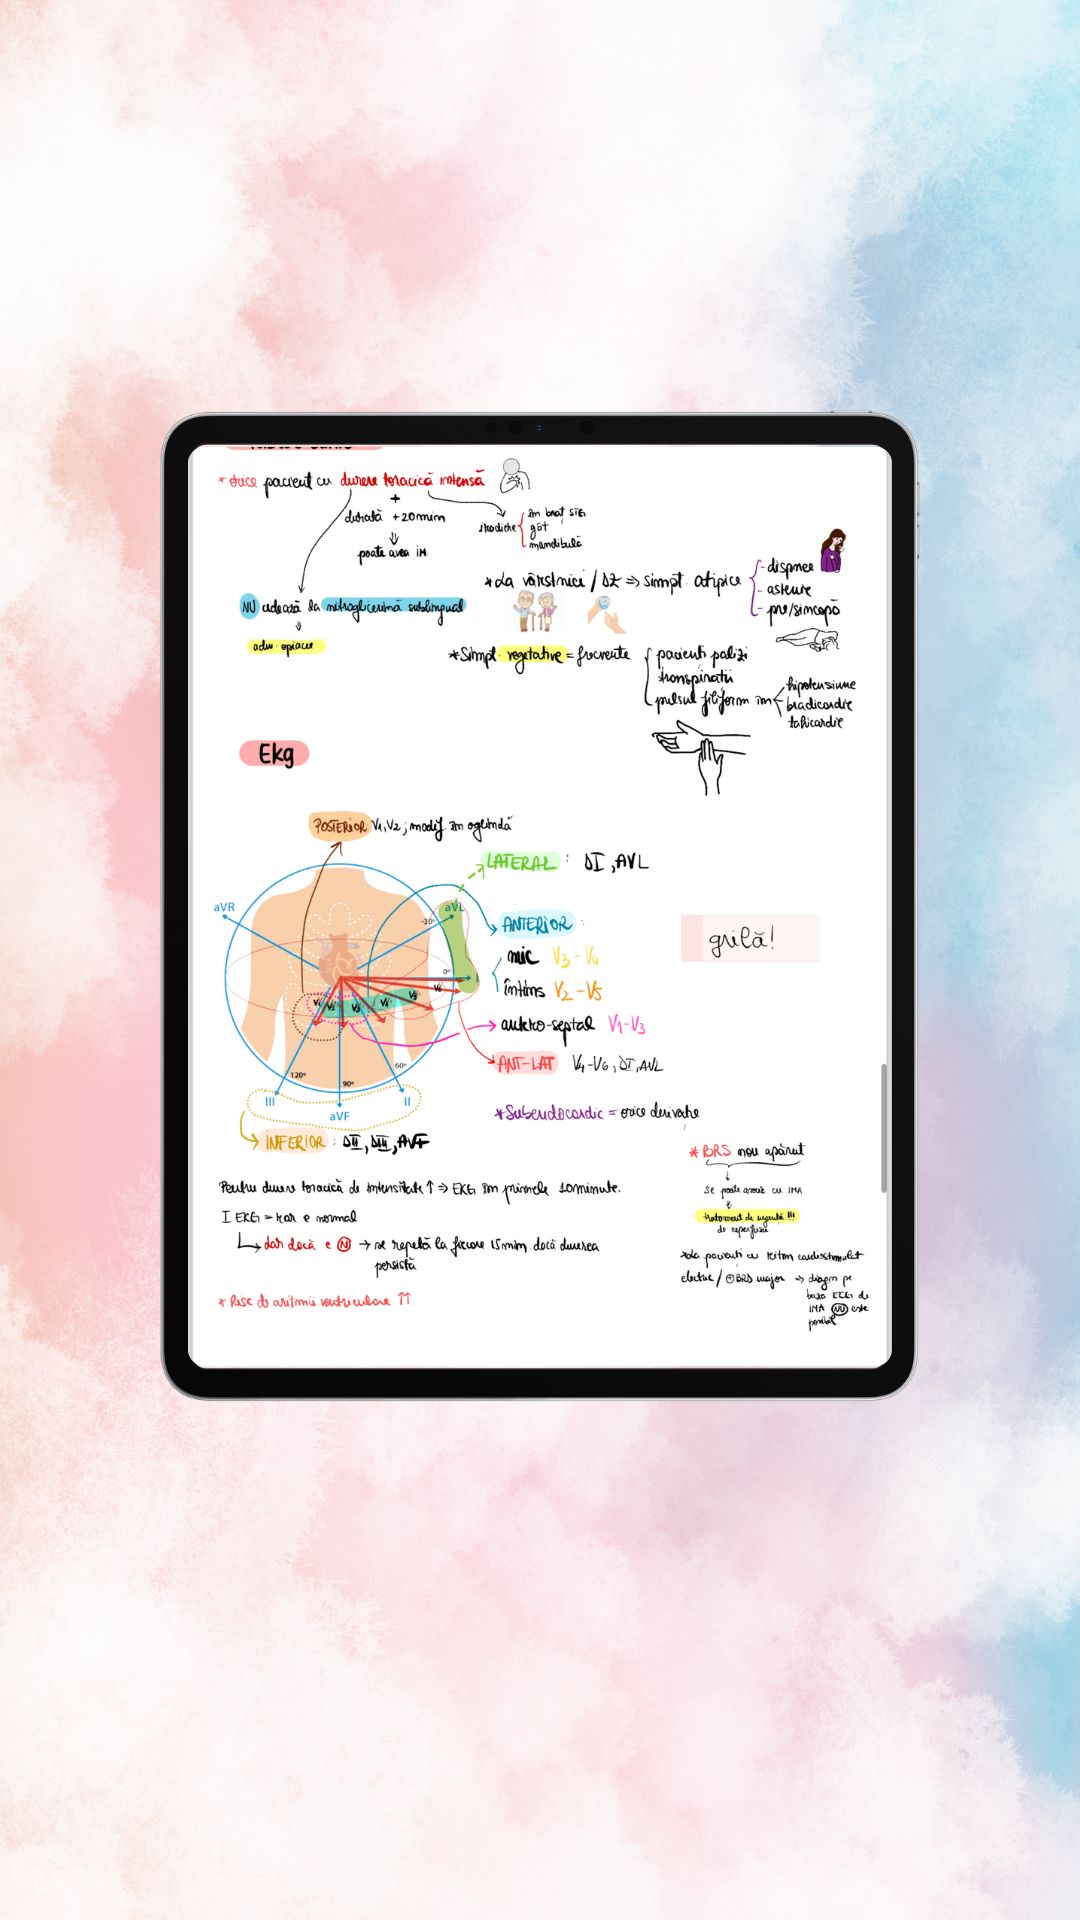 * orice pacient cu durere toracică intensă
+
durată +20 min
⇓
poate avea IM
iradiere
în braț stg
gât
mandibulă
* La vârstnici / DZ ⇒ simpt. atipice
- dispnee
- astenie
- pre/sincopă
NU cedează la nitroglicerină sublingual
adm. opiacee
* Simpt. vegetative = frecvente
pacienți palizi
transpirații
pulsul filiform în
hipotensiune
bradicardie
tahicardie
Ekg
POSTERIOR V1, V2; modif. în oglindă
LATERAL : DI, AVL
aVR
aVL
-30°
ANTERIOR :
grilă!
mic V3-V4
0°
I
întins V2-V5
V1 V2 V3 V4 V5 V6
antero-septal V1-V3
ANT-LAT V4-V6, DI, AVL
120°
90°
60°
III
aVF
II
* Subendocardic = orice derivație
INFERIOR : DII, DIII, AVF
* BRS nou apărut
Pentru durere toracică de intensitate ↑ ⇒ EKG în primele 10 minute.
se poate asocia cu IMA
tratament de urgență !!!
de reperfuzie
I EKG = rar e normal
dar dacă e N → se repetă la fiecare 15 min dacă durerea
persistă
* La pacienți cu ritm cardiostimulat
electric / ⊕ BRS major → diagn pe
baza EKG de
IMA NU este
posibil
* Risc de aritmii ventriculare ↑↑